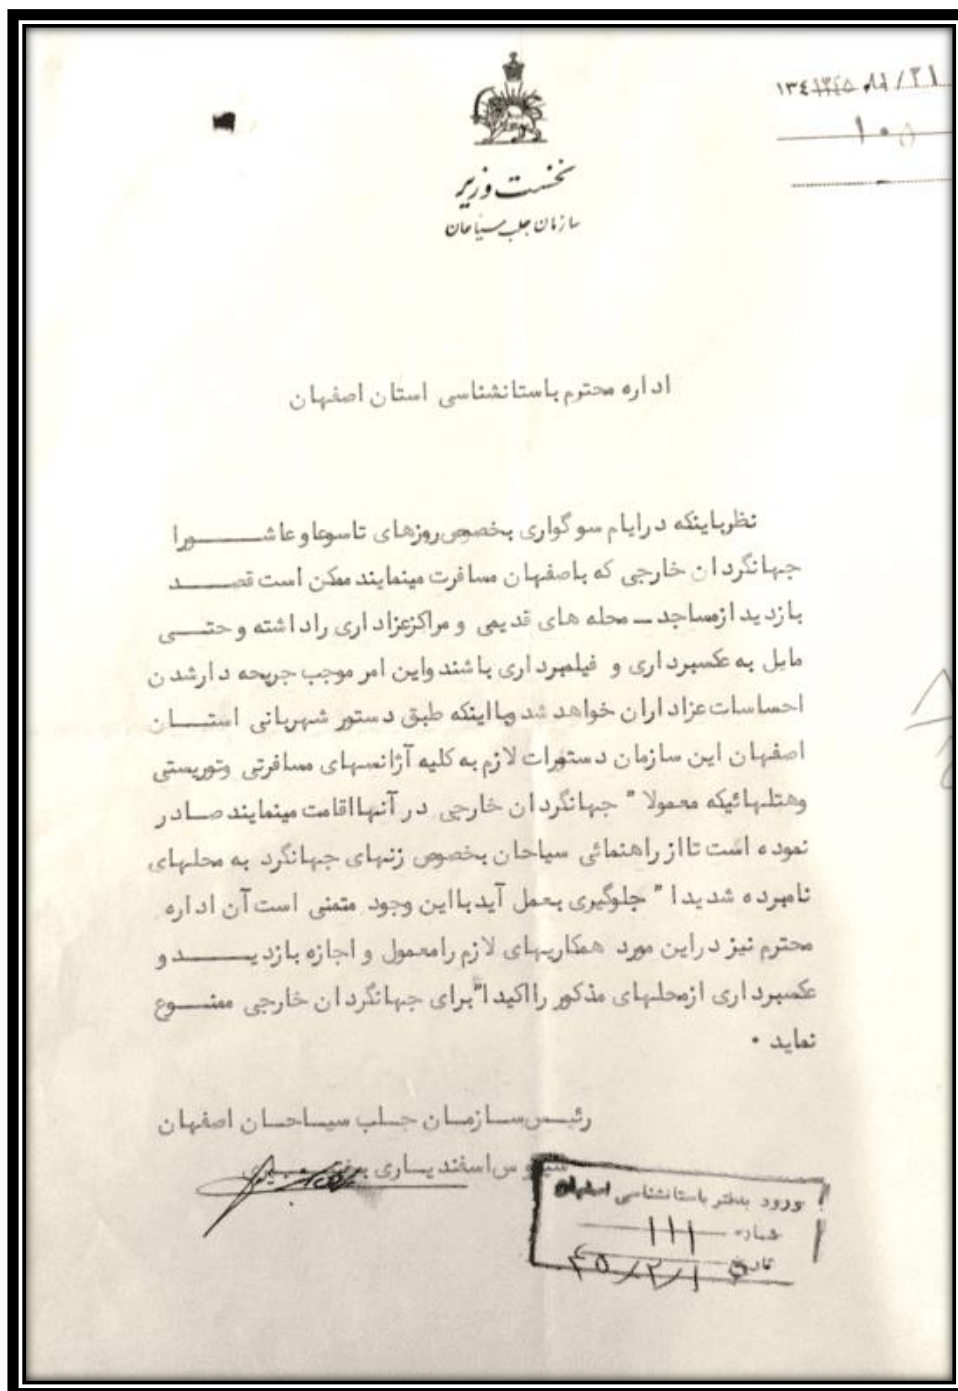 ۱۰۵
نخست وزیر
سازمان جلب سیاحان
اداره محترم باستانشناسی استان اصفهان
نظرباینکه درایام سوگواری بخصوص روزهای تاسوعاوعاشورا
جهانگردان خارجی که باصفهان مسافرت مینمایند ممکن است قصد
بازدید ازمساجد ـ محله های قدیمی و مراکزعزاداری راداشته وحتی
مایل به عکسبرداری و فیلمبرداری باشند واین امر موجب جریحه دارشدن
احساسات عزاداران خواهد شد وبااینکه طبق دستور شهربانی استان
اصفهان این سازمان دستورات لازم به کلیه آژانسهای مسافرتی وتوریستی
وهتلهائیکه معمولا" جهانگردان خارجی در آنهااقامت مینمایند صادر
نموده است تااز راهنمائی سیاحان بخصوص زنهای جهانگرد به محلهای
نامبرده شدیدا" جلوگیری بعمل آید بااین وجود متمنی است آن اداره
محترم نیز دراین مورد همکاریهای لازم رامعمول و اجازه بازدید و
عکسبرداری ازمحلهای مذکور رااکیدا" برای جهانگردان خارجی ممنوع
نماید .
رئیس سازمان جلب سیاحان اصفهان
سیروس اسفندیاری
ورود بدفتر باستانشناسی اصفهان
شماره ۱۱۱
تاریخ